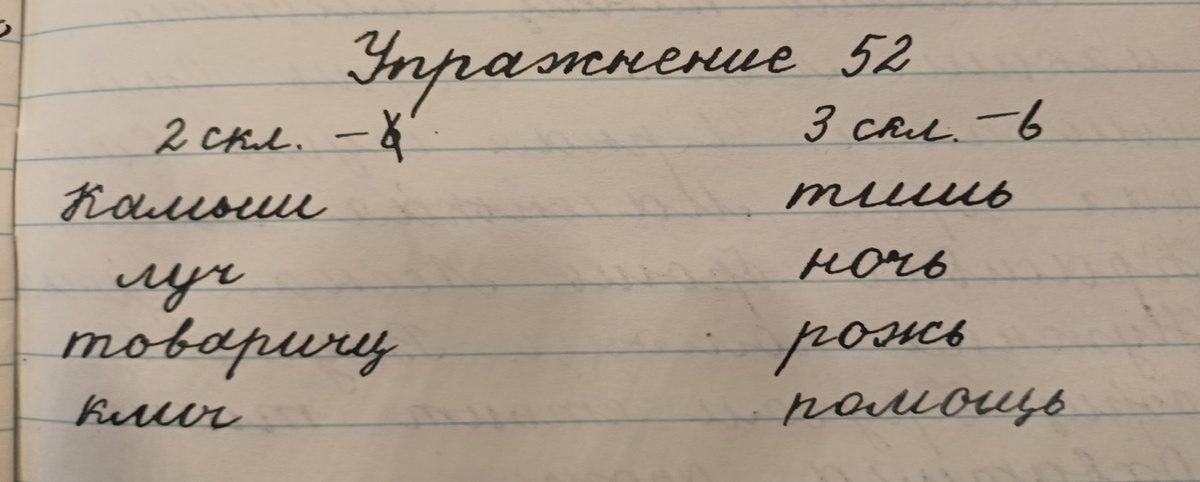 Упражнение 52
2 скл. – ь 3 скл. – ь
Камыш тишь
луч ночь
товарищ рожь
клич помощь